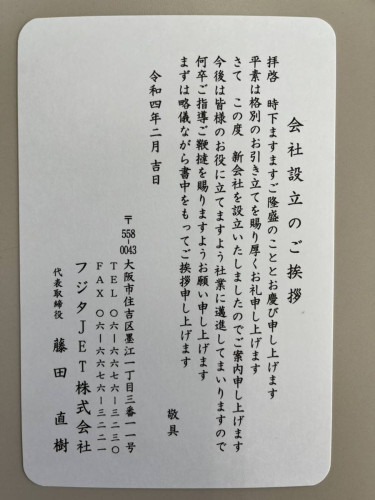 会社設立のご挨拶
拝啓　時下ますますご隆盛のこととお慶び申し上げます
平素は格別のお引き立てを賜り厚くお礼申し上げます
さて　この度　新会社を設立いたしましたのでご案内申し上げます
今後は皆様のお役に立てますよう社業に邁進してまいりますので
何卒ご指導ご鞭撻を賜りますようお願い申し上げます
まずは略儀ながら書中をもってご挨拶申し上げます
敬具
令和四年二月吉日
〒558-0043大阪市住吉区墨江一丁目三番一一号
ＴＥＬ　〇六－六六七六－三二三〇
ＦＡＸ　〇六－六六七六－三二二一
フジタＪＥＴ株式会社
代表取締役　藤田直樹